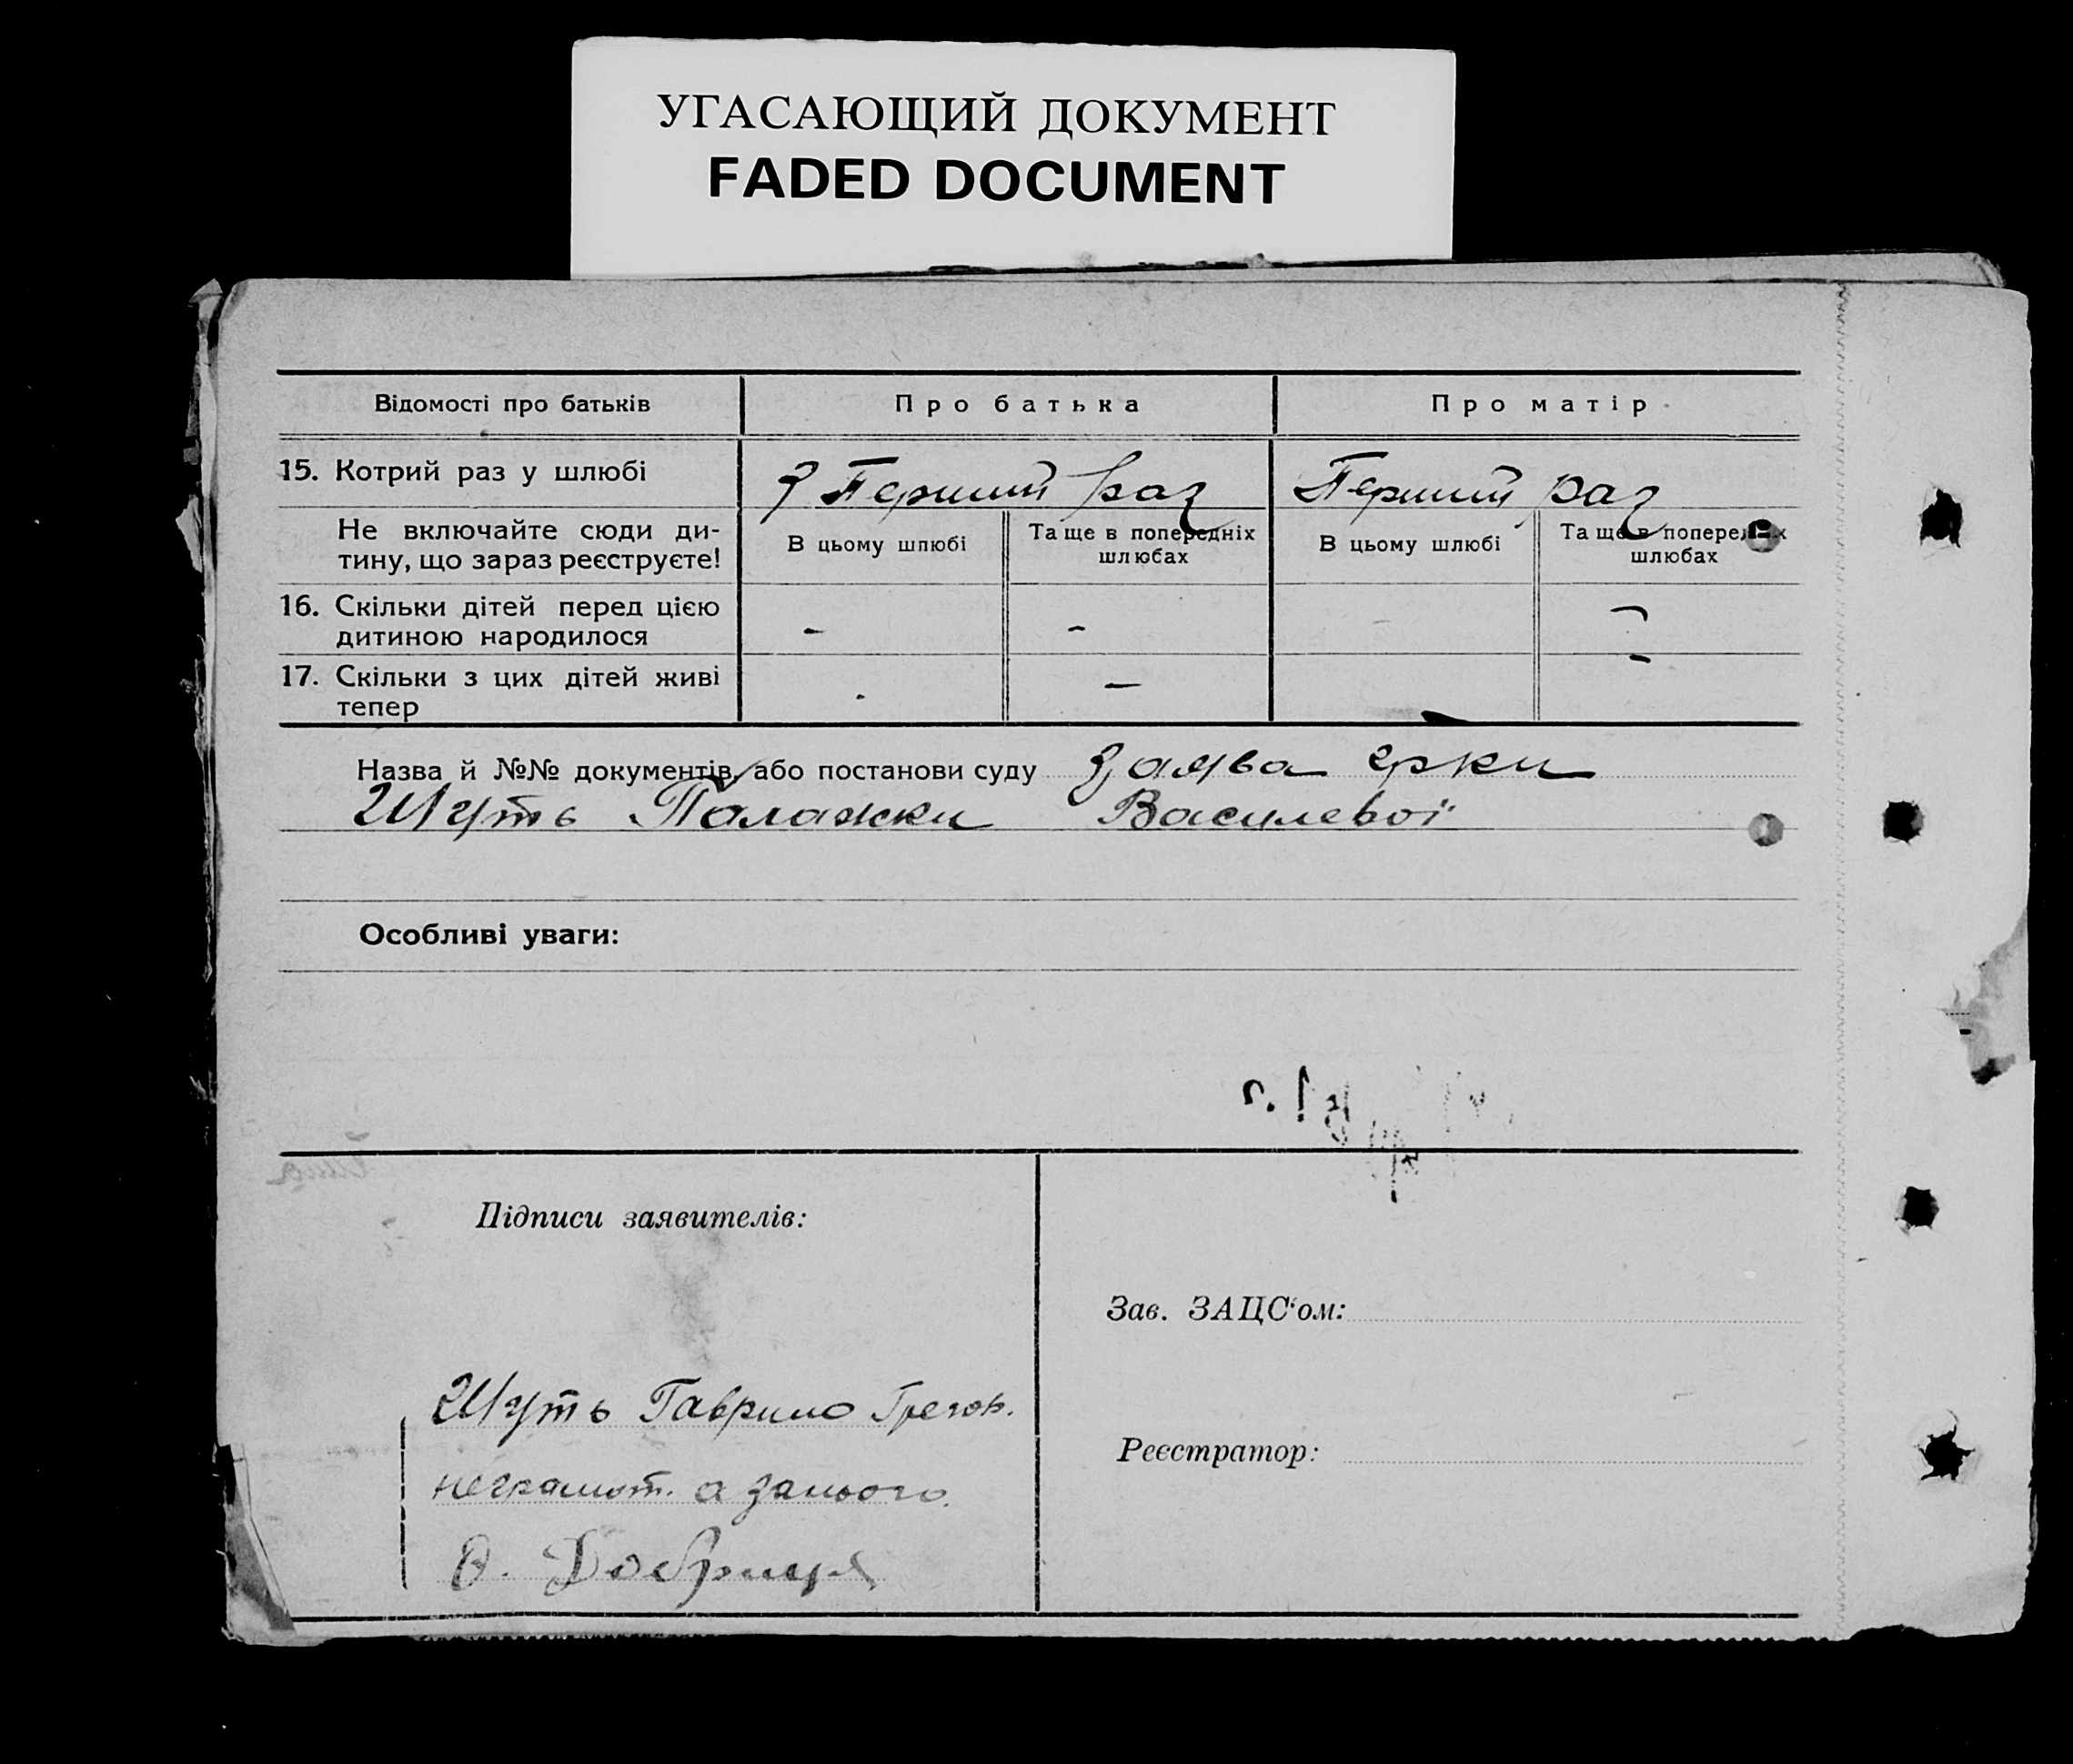 УГАСАЮЩИЙ ДОКУМЕНТ
FADED DOCUMENT
Відомості про батьків Про батька Про матір
15. Котрий раз у шлюбі Перший раз Перший раз
Не включайте сюди ди-
тину, що зараз реєструєте!
В цьому шлюбі Та ще в попередніх шлюбах В цьому шлюбі Та ще в попередніх шлюбах
16. Скільки дітей перед цією - -
дитиною народилося
17. Скільки з цих дітей живі - —
тепер
Назва й №№ документів, або постанови суду Заява гр-ки
Шуть Палажки Василевої
Особливі уваги:
Підписи заявителів:
Зав. ЗАЦС‘ом:
Шуть Гаврило Грегор.
Реєстратор:
неграмот. а за нього
О. Добриця